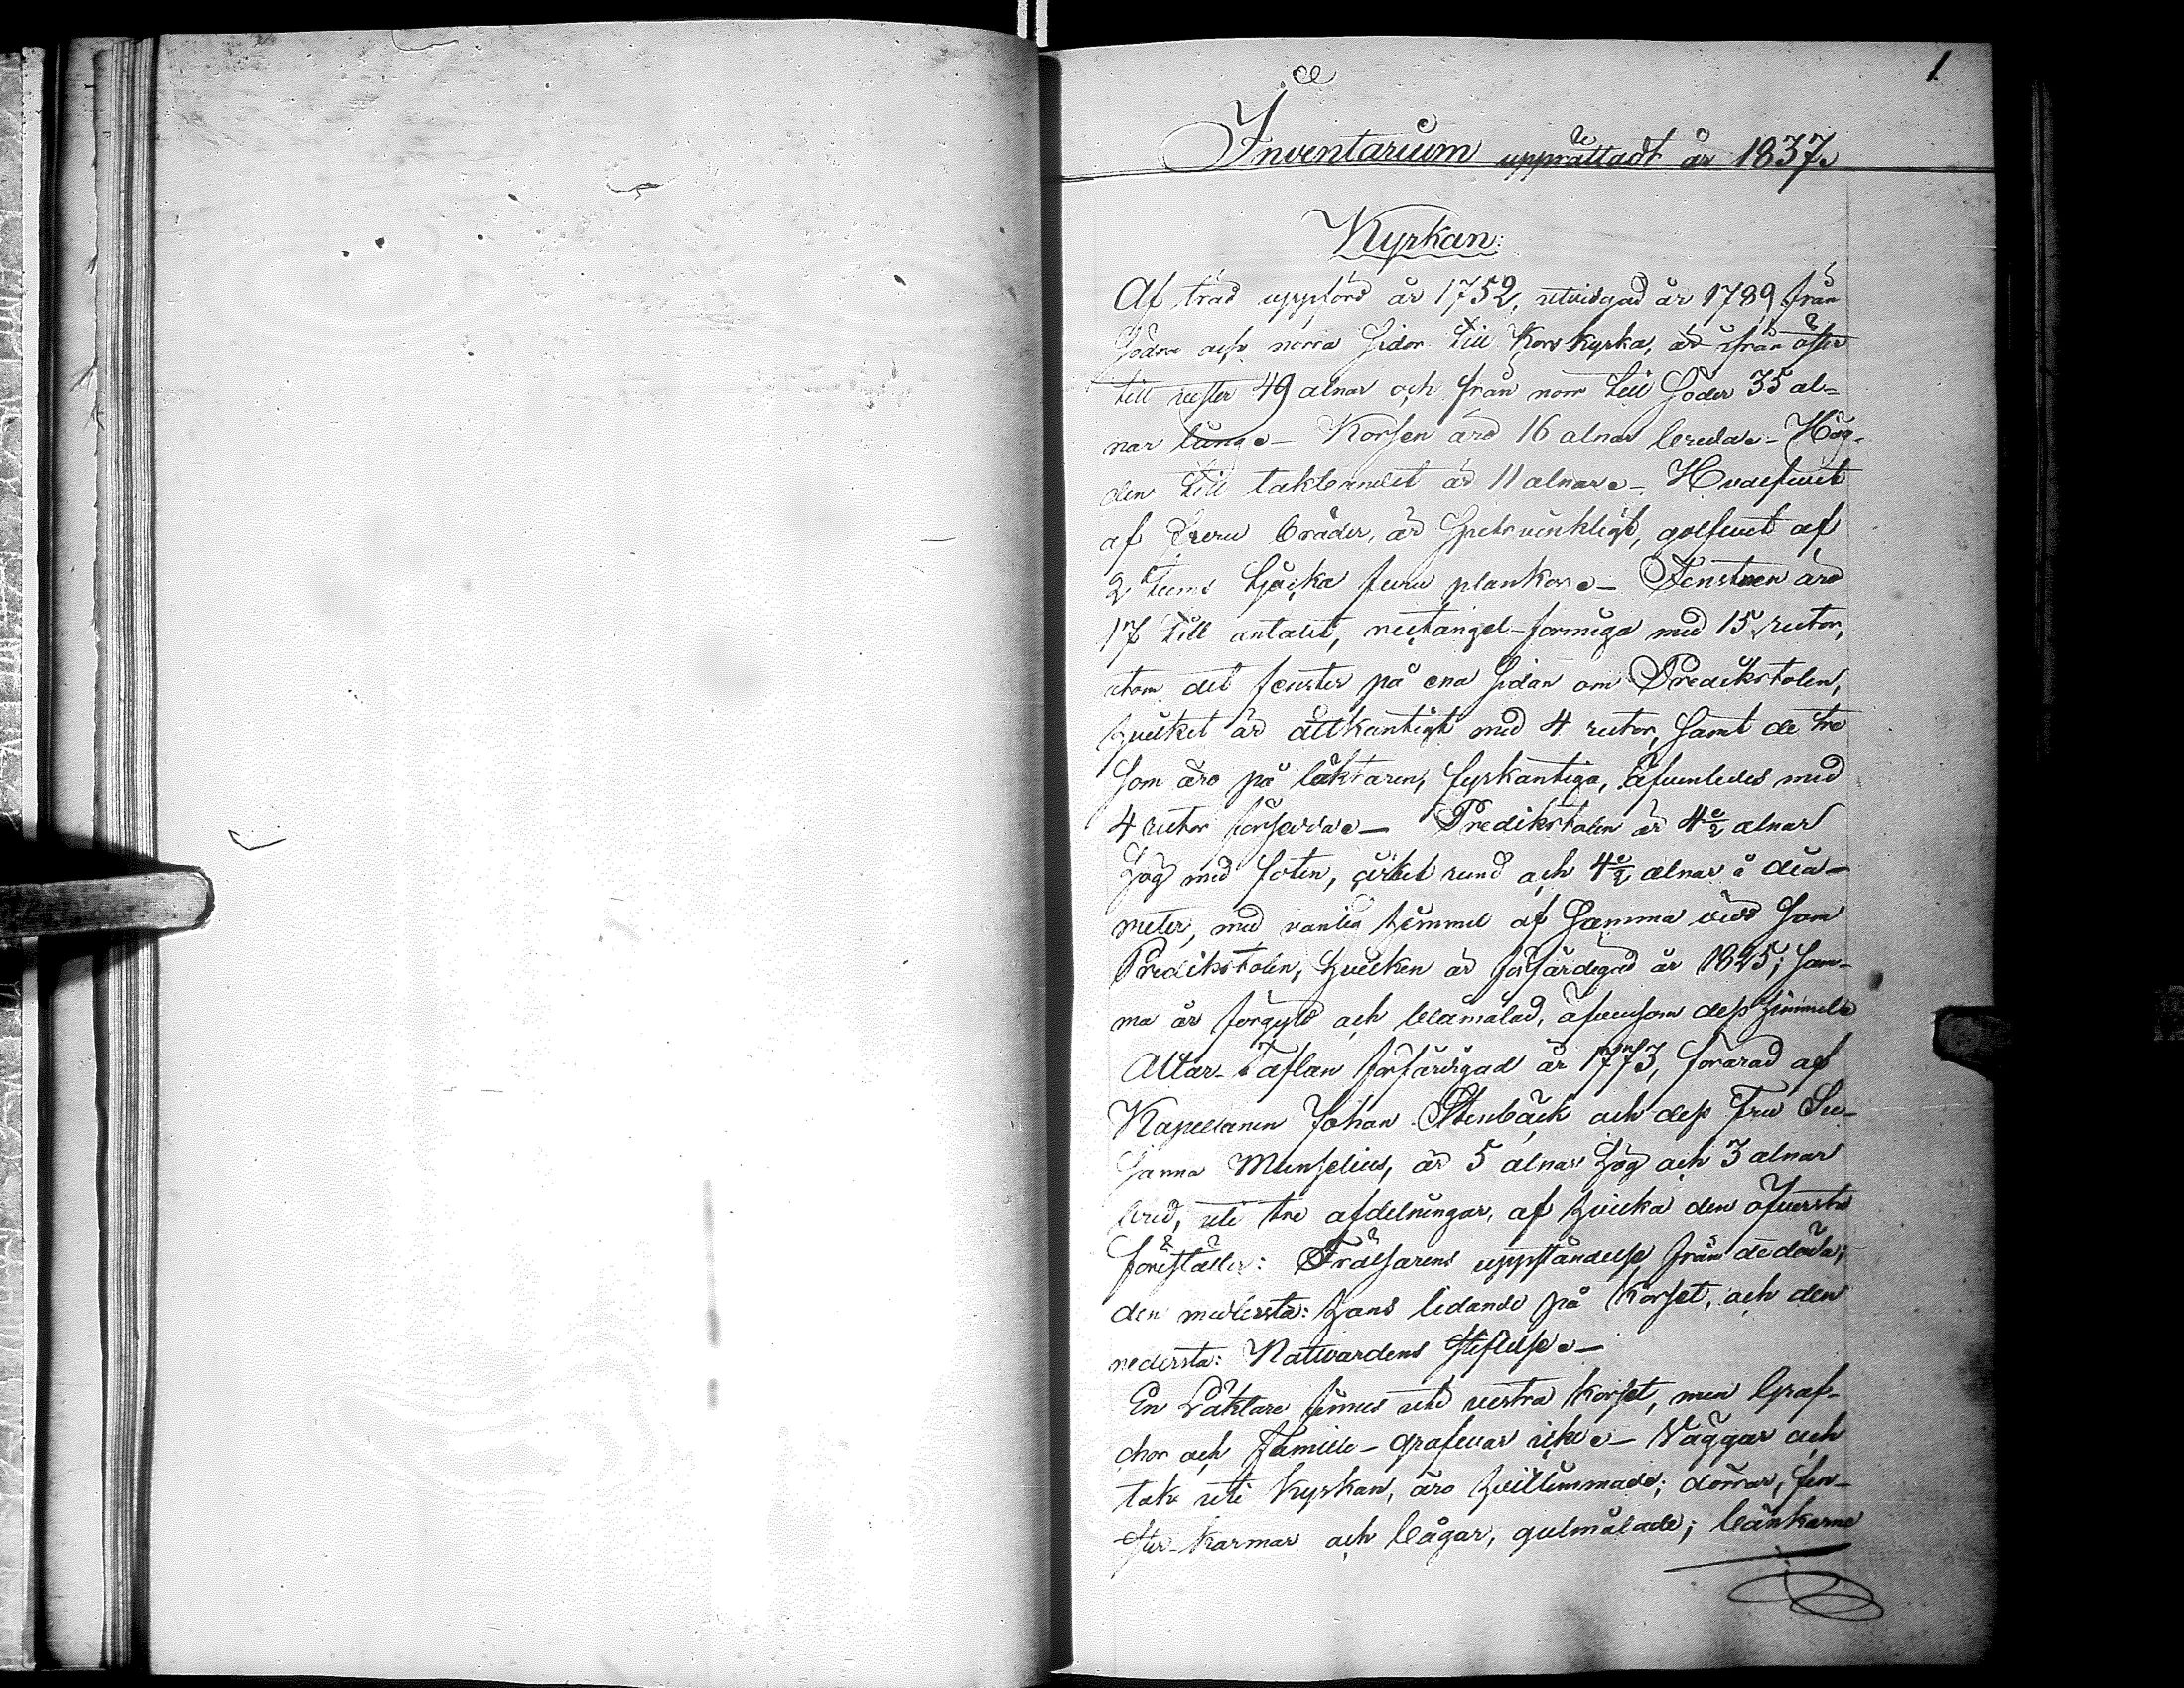 1
Inventarium upprättadt år 1837.
Kyrkan:
Af träd uppförd år 1752, utvidgad år 1789 från
Södra och norra Sidor till Kors kyrka, är ifrån öster
till vester 49 alnar och från norr till Söder 35 al-
nar lång. – Korsen äro 16 alnar breda. – Hög-
den till takbandet är 11 alnar. – Hvalfvet
af bräder, är Spetsvinkligt, golfvet af
2 tums tjocka furu plankor. – Fenstren äro
17 till antalet, rectangel-formiga med 15 rutor,
utom det fenster på ena Sidan om Predikstolen,
hvilket är åttkantigt med 4 rutor, Samt de tre
Som äro på läktaren, fyrkantiga, äfvenledes med
4 rutor försedda. – Predikstolen är 4½ alnar
hög med foten, cirkel rund och 4½ alnar i dia-
meter, med vanlig himmel af Samma vidd Som
Predikstolen, hvilken är förfärdigad år 1825; Sam-
ma år förgyld och blåmålad, äfvensom dess himmel.
Altar-Taflan förfärdigad år 1773, förärad af
Kapellanen Johan Stenbäck och dess Fru Su-
Sanna Munselius, är 5 alnar hög och 3 alnar
bred, uti tre afdelningar, af hvilka den öfversta
föreställer: Frälsarens uppståndelse från de döda;
den medlersta: hans lidande på Korset, och den
nedersta: Nattvardens Stiftelse. –
En Läktare finnes uti vestra Korset, men Graf-
chor och Familie-Grafvar icke. – Väggar och
tak uti Kyrkan, äro hvitlimmade; dörrar, fen-
ster-karmar och bågar, gulmålade; bänkarne